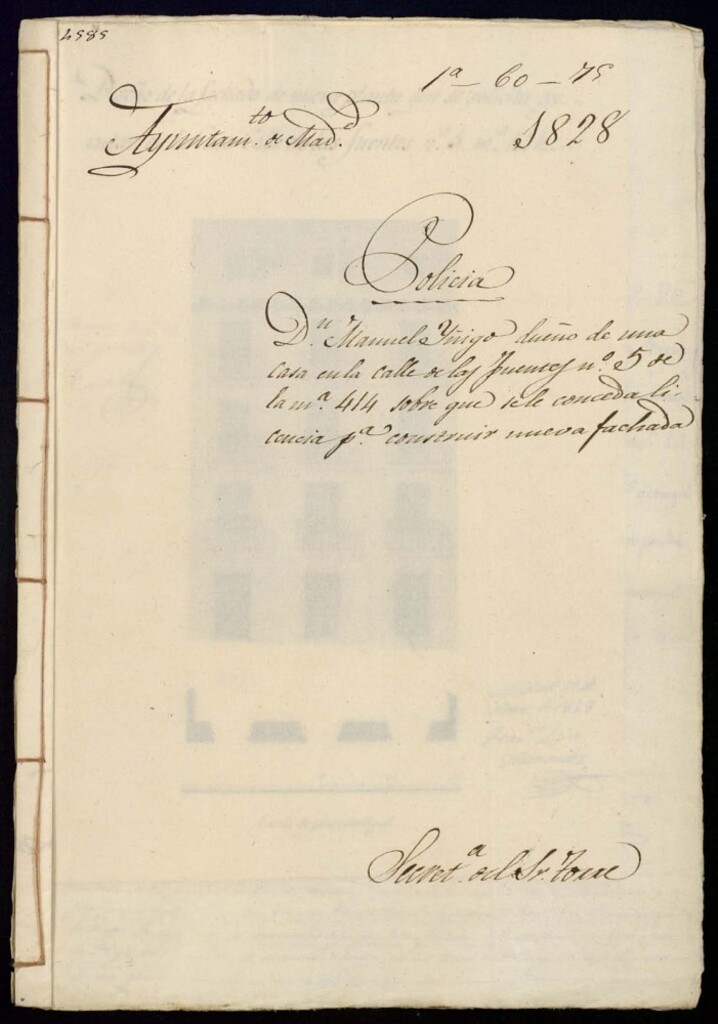 58587
1ª - 60 - 75
Ayuntamto. de Madd.
1828
Policia
Dn. Manuel Yñigo dueño de una
casa en la calle de las Fuentes nº. 5 de
la mª. 414 sobre que se le conceda li-
cencia pª. construir nueva fachada
Secreta. del Sr. Torre